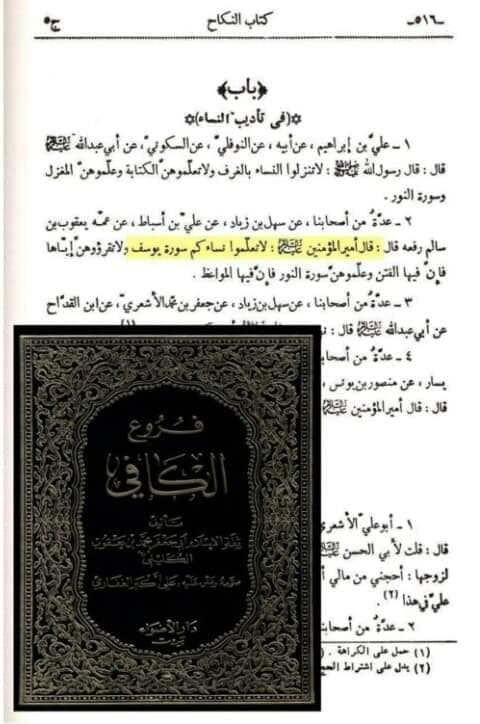 -٥١٦-
كتاب النكاح
ج٥
﴿باب﴾
☆(في تأديب النساء)☆
١ - عليّ بن إبراهيم ، عن أبيه ، عن النوفليّ ، عن السكونيّ ، عن أبي عبدالله عليه السلام
قال : قال رسول الله ﷺ : لاتنزلوا النساء بالغرف ولاتعلّموهنّ الكتابة وعلّموهنّ المغزل
وسورة النور .
٢ - عدّةٌ من أصحابنا ، عن سهل بن زياد ، عن عليّ بن أسباط ، عن عمّه يعقوب بن
سالم رفعه قال : قال أمير المؤمنين عليه السلام : لاتعلّموا نساءكم سورة يوسف ولاتقرؤوهنّ إيّاها
فإنّ فيها الفتن وعلّموهنّ سورة النور فإنّ فيها المواعظ .
٣ - عدّةٌ من أصحابنا ، عن سهل بن زياد ، عن جعفر بن محمّد الأشعريّ ، عن ابن القدّاح
عن أبي عبدالله عليه السلام قال :
٤ - عدّةٌ من أصحابنا
يسار ، عن منصور بن يونس ،
قال : قال أمير المؤمنين عليه السلام
فروع
الكافي
تأليف
الكليني
دار الأضواء
بيروت
١ - أبو عليّ الأشعري
قال : قلت لأبي الحسن
لزوجها : أحجني من مالي
عليّ في هذا (٢) .
٢ - عدّةٌ من أصحابنا
(١) حمل على الكراهة .
(٢) يدل على اشتراط